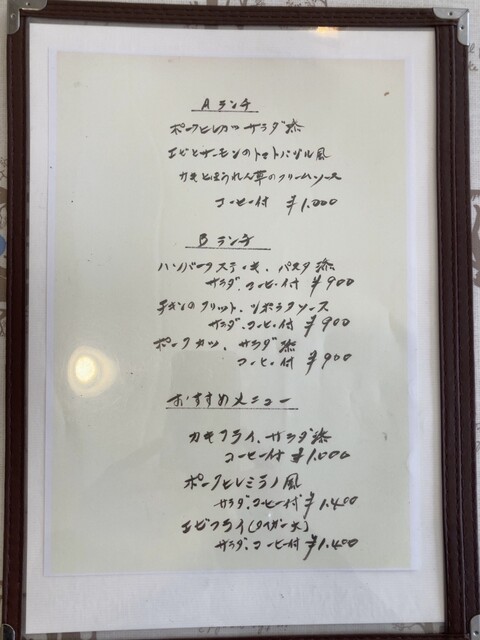 Aランチ
ポークヒレカツ サラダ添
エビとサーモンのトマトバジル風
カキとほうれん草のクリームソース
コーヒー付 ¥1.000
Bランチ
ハンバーグステーキ、パスタ添
サラダ、コーヒー付 ¥900
チキンのフリット、ラソース
サラダ、コーヒー付 ¥900
ポークカツ、サラダ添
コーヒー付 ¥900
おすすめメニュー
カキフライ、サラダ添
コーヒー付 ¥1.000
ポークヒレミラノ風
サラダ、コーヒー付 ¥1.400
エビフライ(タイガー大)
サラダ、コーヒー付 ¥1.400